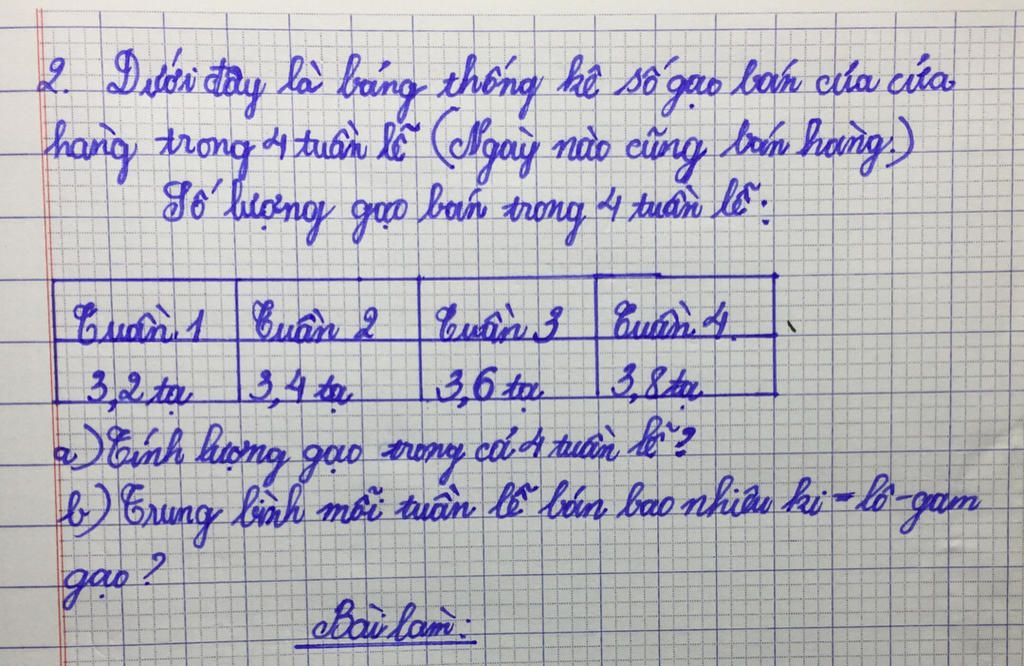 2. Dưới đây là bảng thống kê số gạo bán của cửa
hàng trong 4 tuần lễ (Ngày nào cũng bán hàng.)
Số lượng gạo bán trong 4 tuần lễ:
Tuần 1 Tuần 2 Tuần 3 Tuần 4
3,2 tạ 3,4 tạ 3,6 tạ 3,8 tạ
a) Tính lượng gạo trong cả 4 tuần lễ?
b) Trung bình mỗi tuần lễ bán bao nhiêu ki-lô-gam
gạo?
Bài làm: